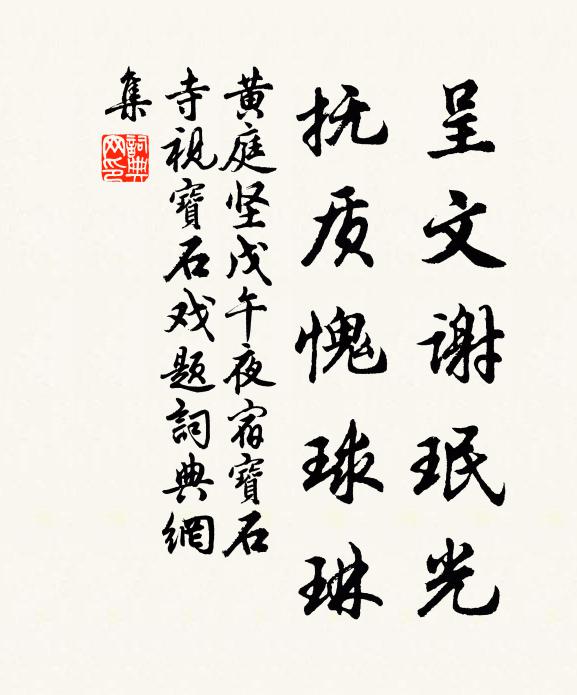 呈文谢珉光
抚质愧球琳
黄庭坚戊午夜宿寶石
寺视寶石戏题詞典網
集
詞典網印